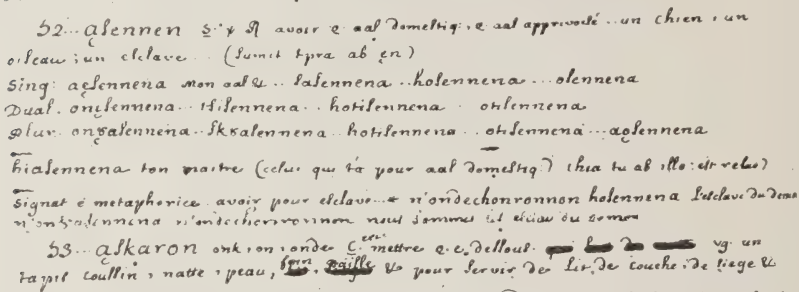 52... asennen S. et R avoir q. aal domestiq:, q. aal apprivoisé.. un chien, un
oiseau; un esclave. (sumit tpra ab en)
Sing: aesennena mon aal &.. sasennena.. hosennena... osennena
Dual. onisennena.. tisennena.. hotisennena. otisennena
plur. onȣasennena.. skȣasennena.. hotisennena.. otisennena... aosennena
hiasennena ton maitre (celui qui t'a pour aal domestiq:) ihia tu ab illo:
signat é metaphoricè avoir pour esclave.. n'ondechonronnon hosennena l'esclave du demon
n'onȣasennena n'ondechonronnon nous sommes esclav du demon
53... askaron onk, on, onde C. mettre q.c. dessous. vg. un
tapis coussin, natte, peau, foin, paille & pour servir de lit, de couche, de siege &